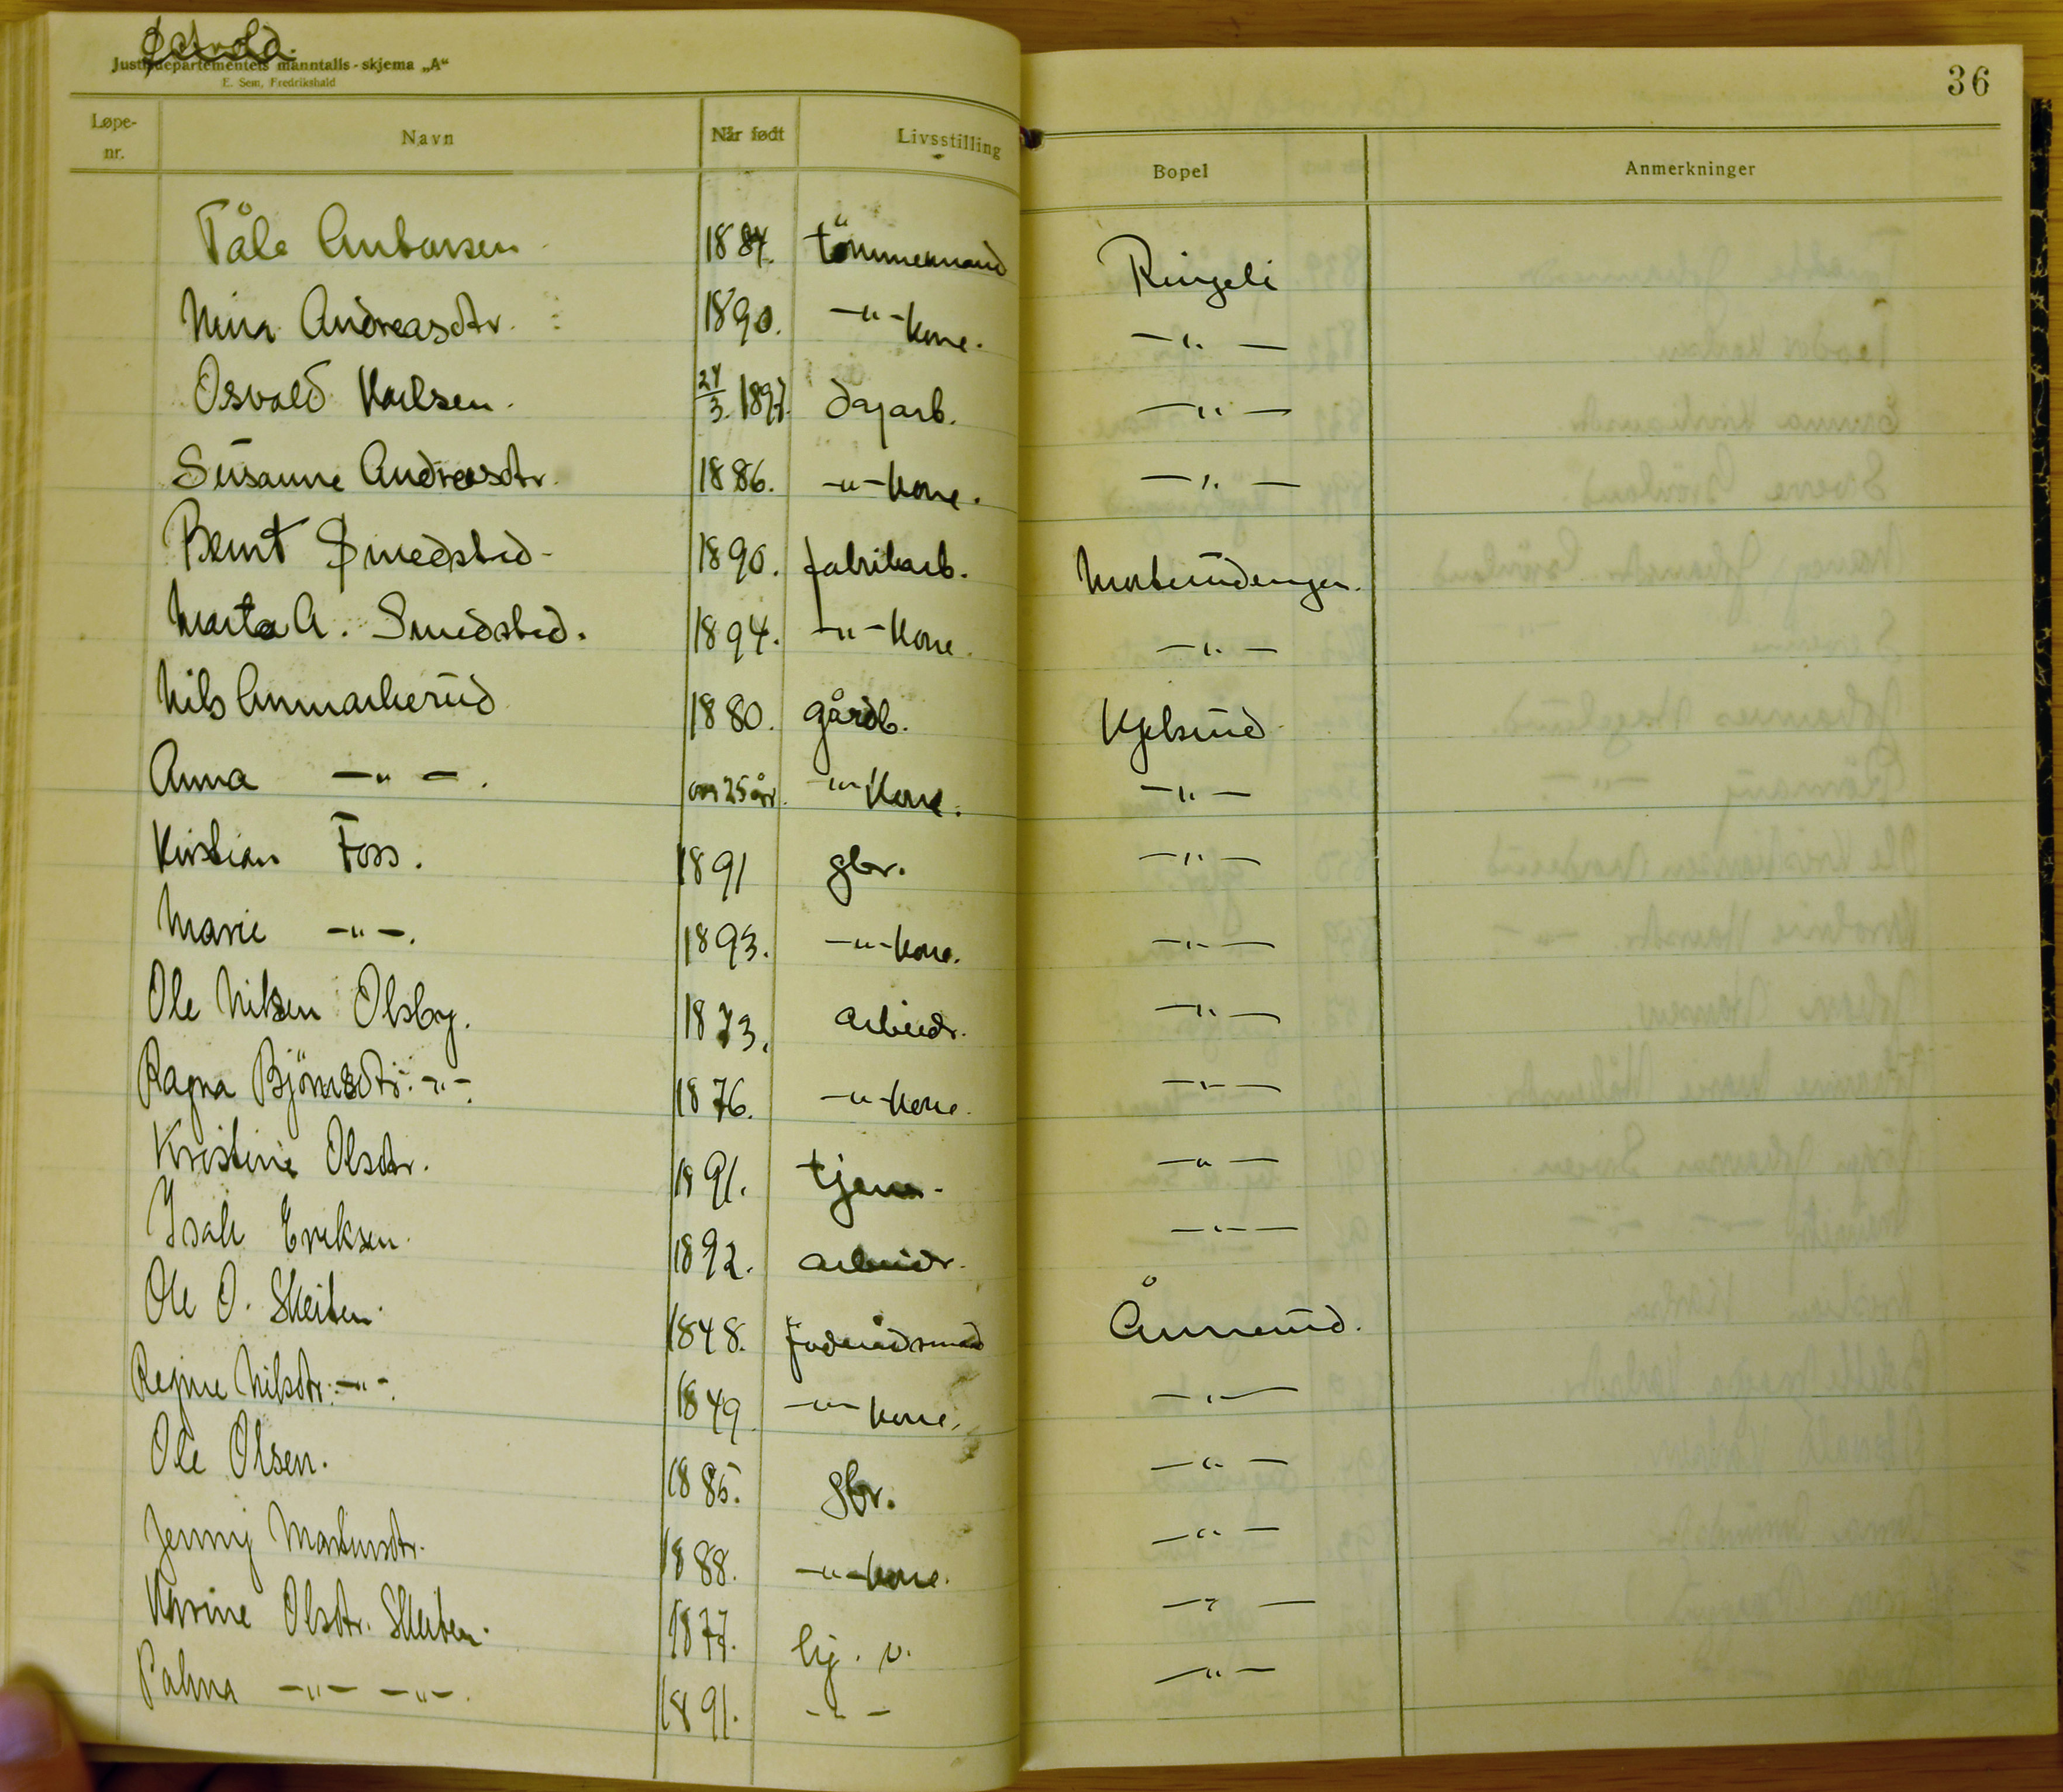 Justisdepartementets manntalls-skjema „A“
E. Sem, Fredrikshald
36
Løpe-nr. Navn Når født Livsstilling Bopel Anmerkninger
Tåle 1884. tömmermand Ringeli
Nina Andreasdtr. 1890. -"- kone. -"-
Osvald Karlsen. 24/3. 1897. dagarb. -"-
Susanne Andreasdtr. 1886. -"- kone. -"-
Bernt Smedsted 1890. fabrikarb.
Marta A. Smedsted. 1894. -"- kone. -"-
Nils 1880. gårdb. Kjelsrud
Anna -"-. over 25 år. -"- kone. -"-
Kristian Foss. 1891 gbr. -"-
Marie -"-. 1893. -"- kone. -"-
Ole Nilsen Olsby. 1873. arbeidr. -"-
Ragna Björnsdtr. -"-. 1876. -"- kone. -"-
Kristine Olsdtr. 1891. tjen. -"-
Isak Eriksen. 1892. arbeidr. -"-
Ole O. Skeiten. 1848. föderådsmand Ånnerud.
Regine Nilsdtr. -"-. 1849 -"- kone. -"-
Ole Olsen. 1885. gbr. -"-
Jenny Martinsdtr. 1888. -"- kone. -"-
Karine Olsdtr. Skeiten. 1877. hj. v. -"-
Palma -"- -"-. 1891. -"- -"-